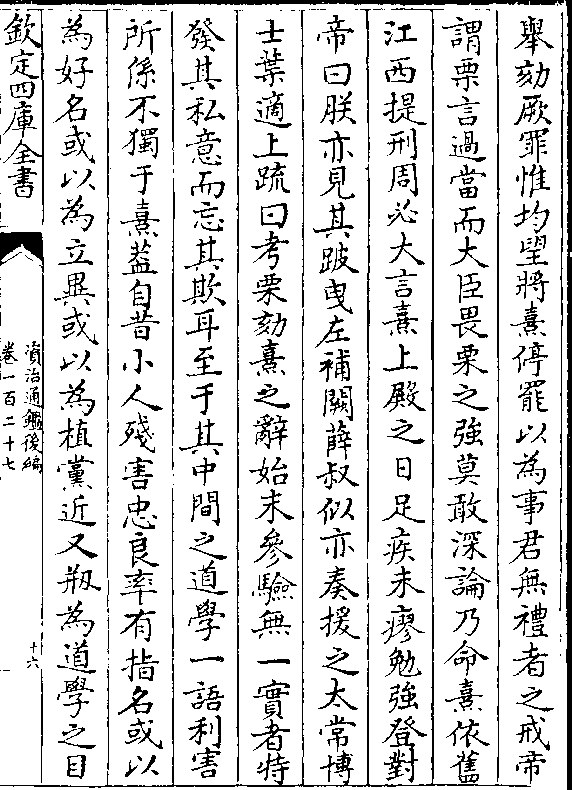 舉劾厥罪惟均望將熹停罷以為事君無禮者之戒帝
謂栗言過當而大臣畏栗之強莫敢深論乃命熹依舊
江西提刑周必大言熹上殿之日足疾未瘳勉強登對
帝曰朕亦見其跛曵左補闕薛叔似亦奏援之太常博
士葉適上疏曰考栗劾熹之辭始末參驗無一實者特
發其私意而忘其欺耳至于其中間之道學一語利害
所係不獨于熹葢自昔小人殘害忠良率有指名或以
為好名或以為立異或以為植黨近又刱為道學之目
欽定四庫全書
資治通鑑後編
卷一百二十七
十六